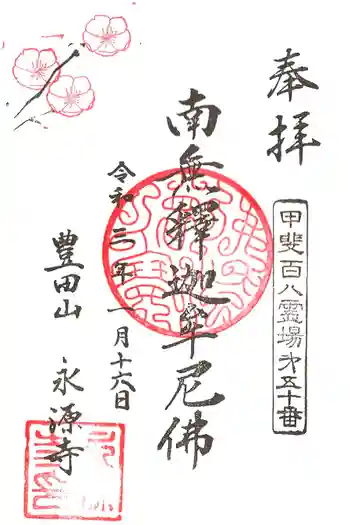 奉拝
甲斐百八霊場第五十番
南無釋迦牟尼佛
令和三年一月十六日
豊田山
永源寺